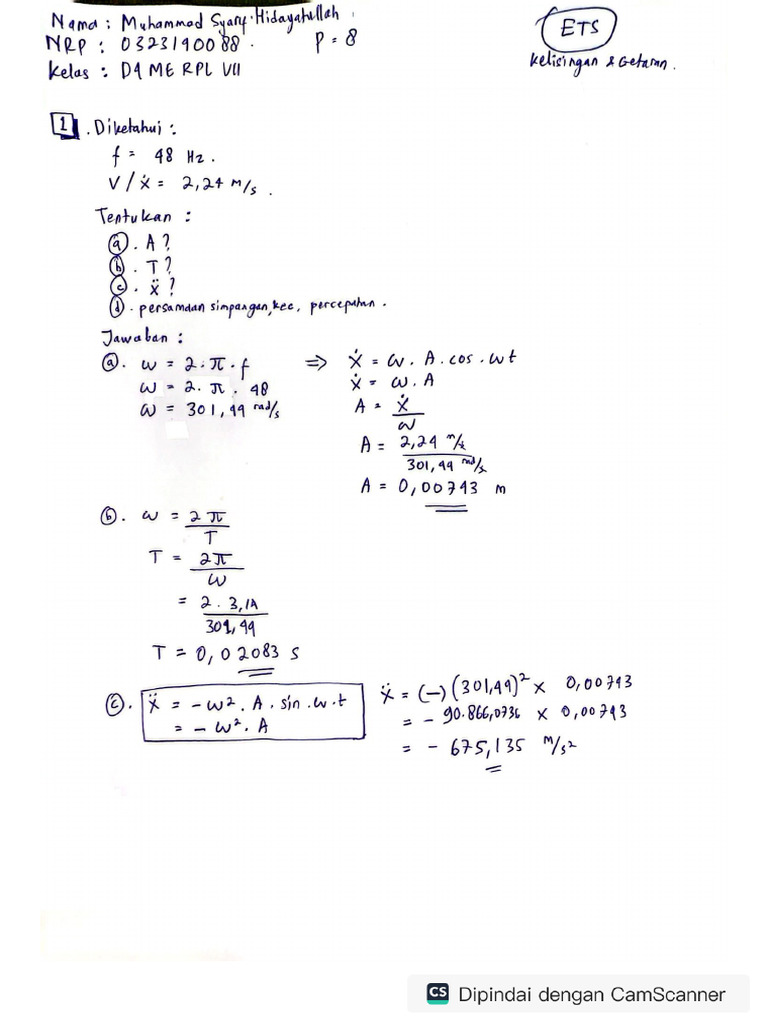 Nama : Muhammad Syarif Hidayatullah
NRP : 0323190088. P = 8
Kelas : D4 ME RPL VII
ETS
Kebisingan & Getaran.
1. Diketahui :
f = 48 Hz.
V/ẋ = 2,24 m/s.
Tentukan :
a. A?
b. T?
c. ẍ?
d. persamaan simpangan, kec, percepatan.
Jawaban :
a. ω = 2.π.f ⇒ ẋ = ω. A. cos. ωt
ω = 2. π. 48 ẋ = ω. A
ω = 301,44 rad/s A = ẋ/ω
A = 2,24 m/s / 301,44 rad/s
A = 0,00743 m
b. ω = 2π/T
T = 2π/ω
= 2. 3,14 / 301,44
T = 0,02083 s
c. ẍ = -ω². A. sin. ω.t ẍ = (-)(301,44)² x 0,00743
= -ω². A = - 90.866,0736 x 0,00743
= - 675,135 m/s²
CS Dipindai dengan CamScanner